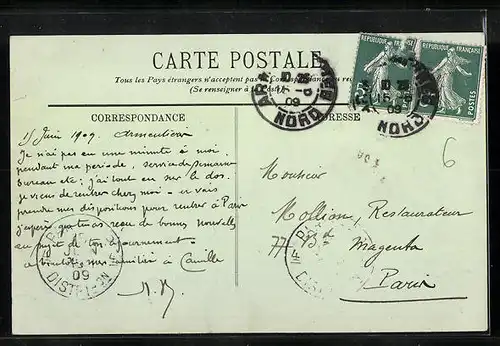 CARTE POSTALE
Tous les Pays étrangers n'acceptent pas la Correspondance au recto
(Se renseigner à la Poste)
RÉPUBLIQUE FRANÇAISE
POSTES
NORD
15 -6
09
CORRESPONDANCE
ADRESSE
15 Juin 1909. Armentières
Je n'ai pas eu une minute à moi
pendant ma période, service de semaine
bureau etc; j'ai tout eu sur le dos.
je viens de rentrer chez moi - et vais
prendre mes dispositions pour rentrer à Paris
j'espère que tu as reçu de bonnes nouvelles
au sujet de ton ajournement
mes amitiés à Camille
Monsieur
Mollion, Restaurateur
77 Bd Magenta
Paris
PARIS
09
DISTRIBUTION
6